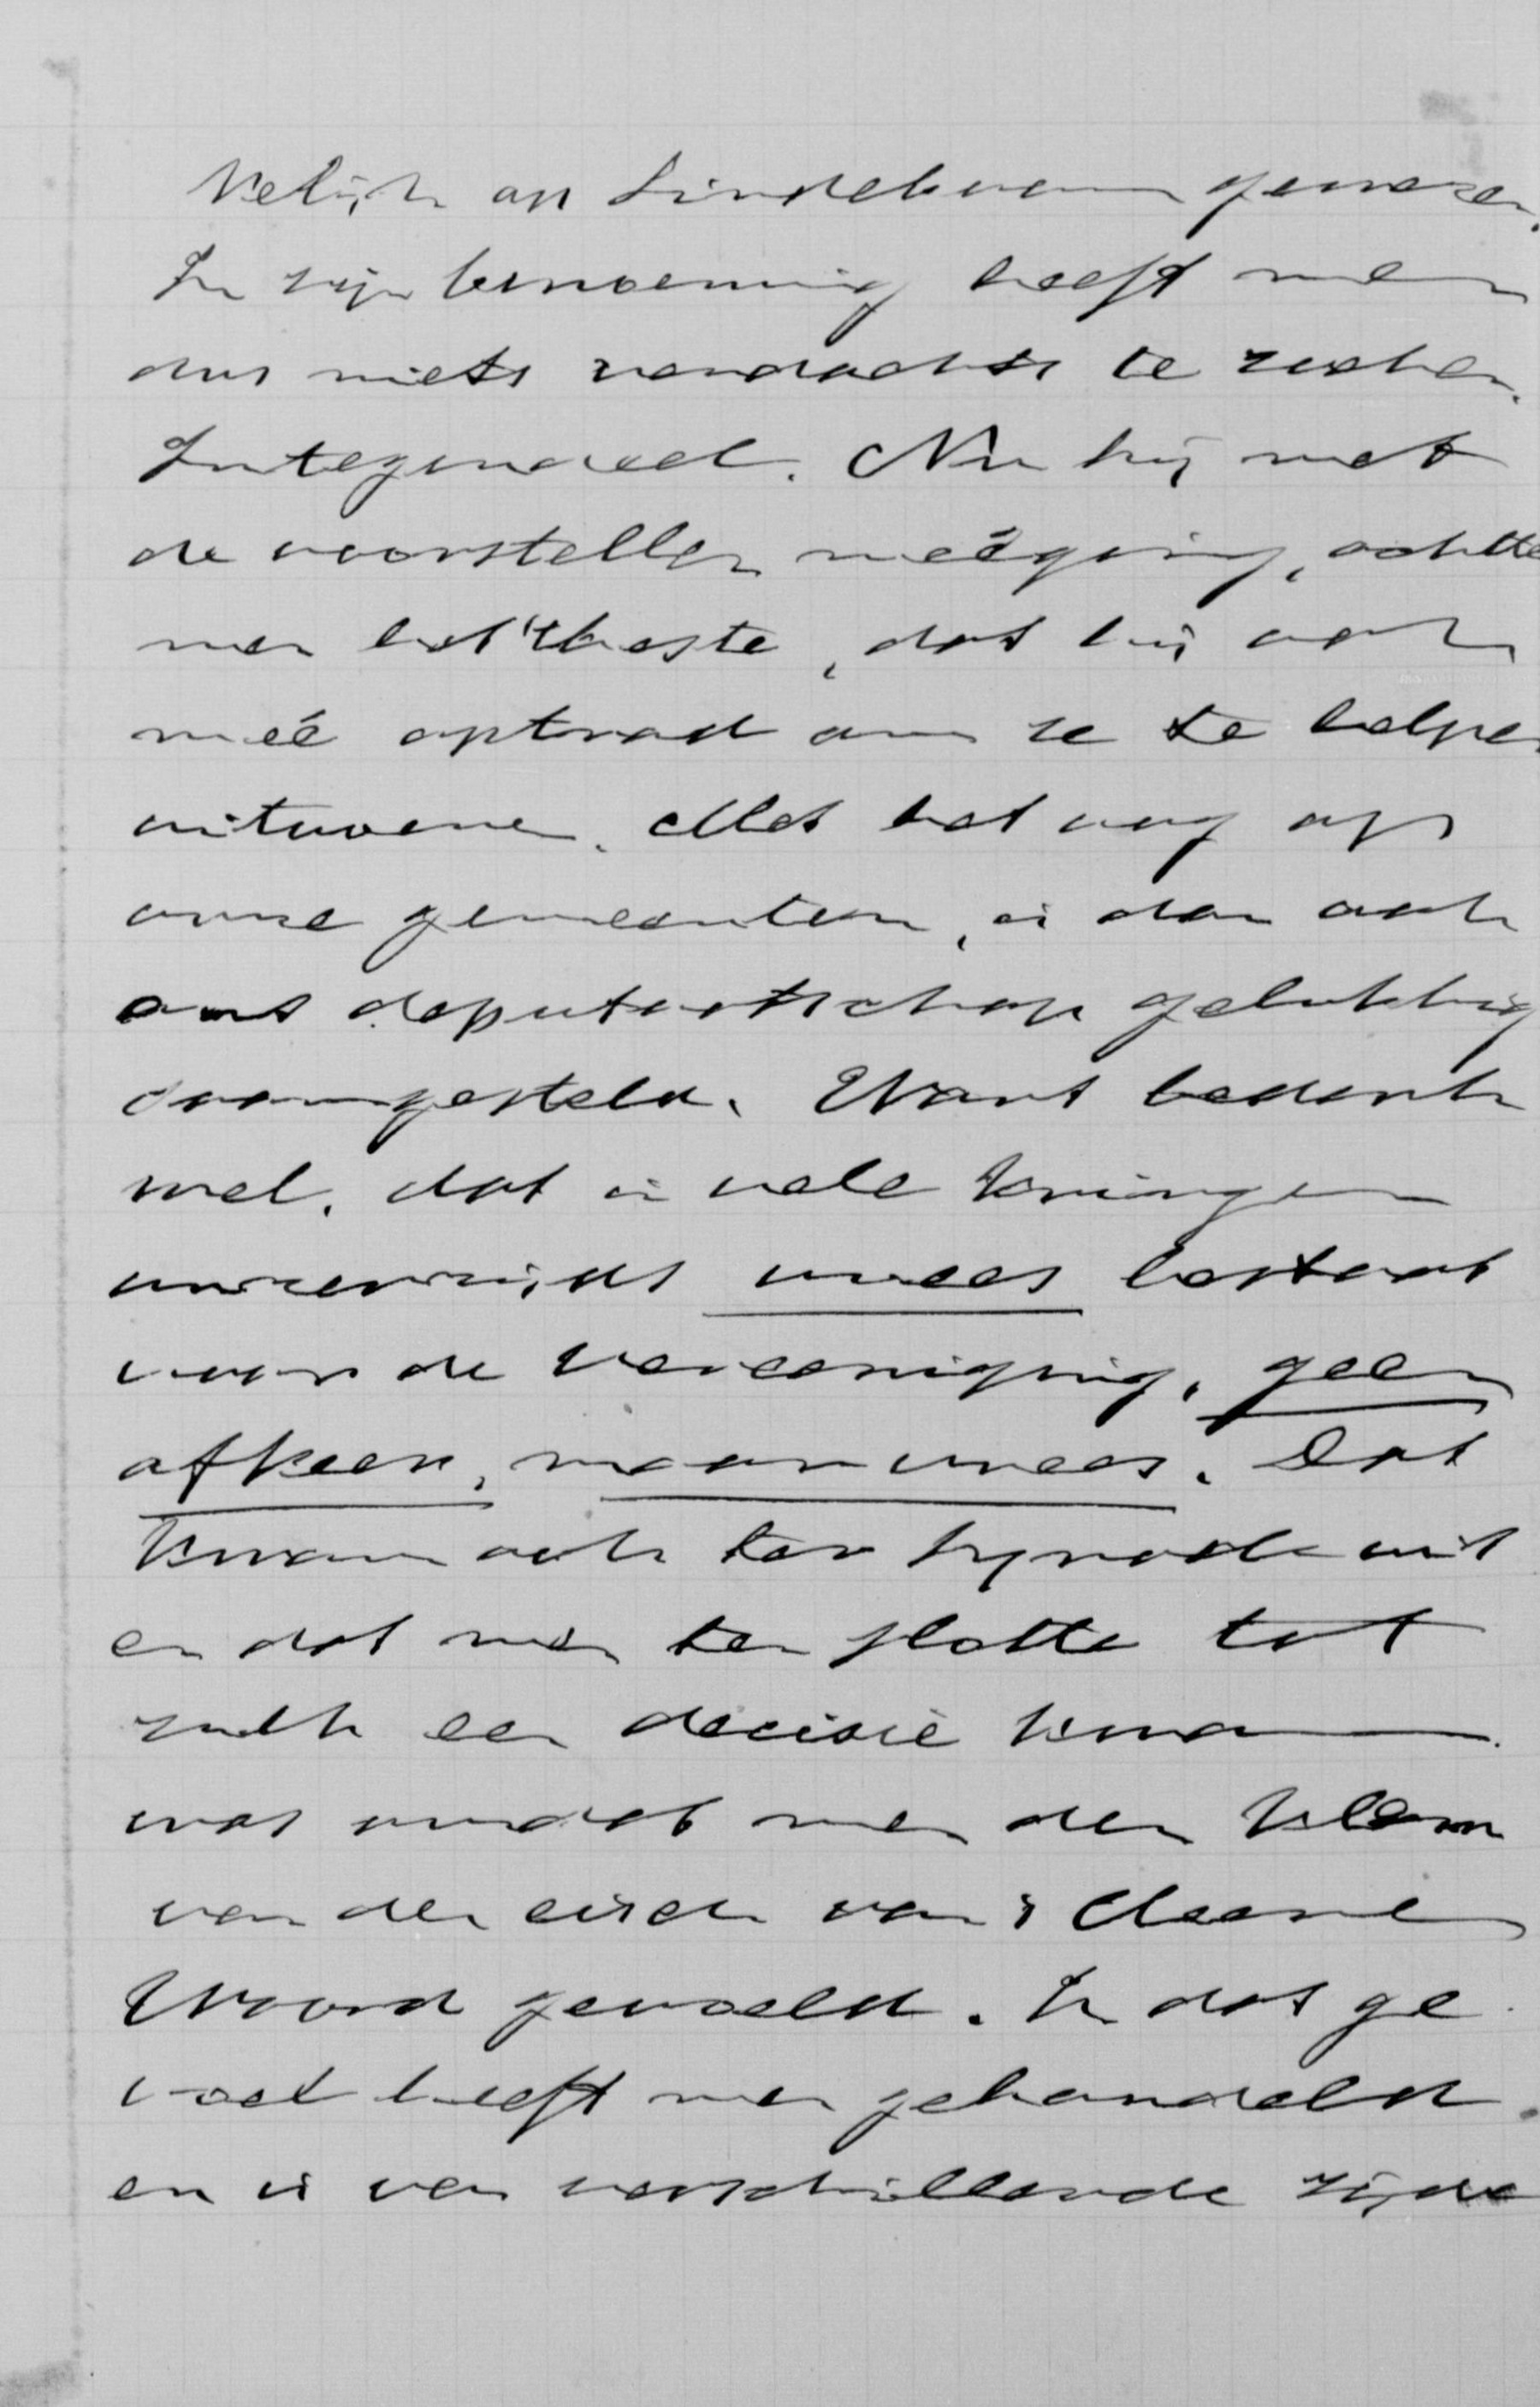 kelijk op Lindeboom gewezen.
In zijn benoeming heeft men
dus niets verdachts te zoeken.
Integendeel. Nu hij met
de voorstellen meêging, achtte
men het 't beste, dat hij ook
meê optrad om ze te helpen
uitvoeren. Met het oog op
onze gemeenten, is dan ook
ons deputaatschap gelukkig
saamgesteld. Want bedenk
wel, dat in vele kringen
onzerzijds vrees bestaat
voor de Vereeniging, geen
afkeer, maar vrees. Dat
kwam ook ter Synode uit
en dat men ten slotte tot
zulk een decisie kwam
was omdat men den klem
van den eisch van 's Heeren
Woord gevoeld. In dat ge
voel heeft men gehandeld
en is van verschillende zijde